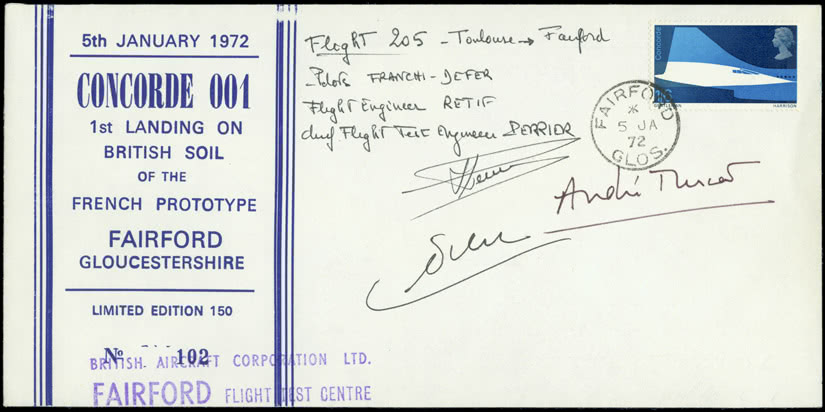 5th JANUARY 1972
CONCORDE 001
1st LANDING ON
BRITISH SOIL
OF THE
FRENCH PROTOTYPE
FAIRFORD
GLOUCESTERSHIRE
LIMITED EDITION 150
No 102
BRITISH AIRCRAFT CORPORATION LTD.
FAIRFORD FLIGHT TEST CENTRE
Flight 205 - Toulouse → Fairford
Pilots FRANCHI - DEFER
Flight Engineer RETIF
chief Flight Test Engineer PERRIER
André Turcat
Concorde
HARRISON
FAIRFORD
5 JA
72
GLOS.